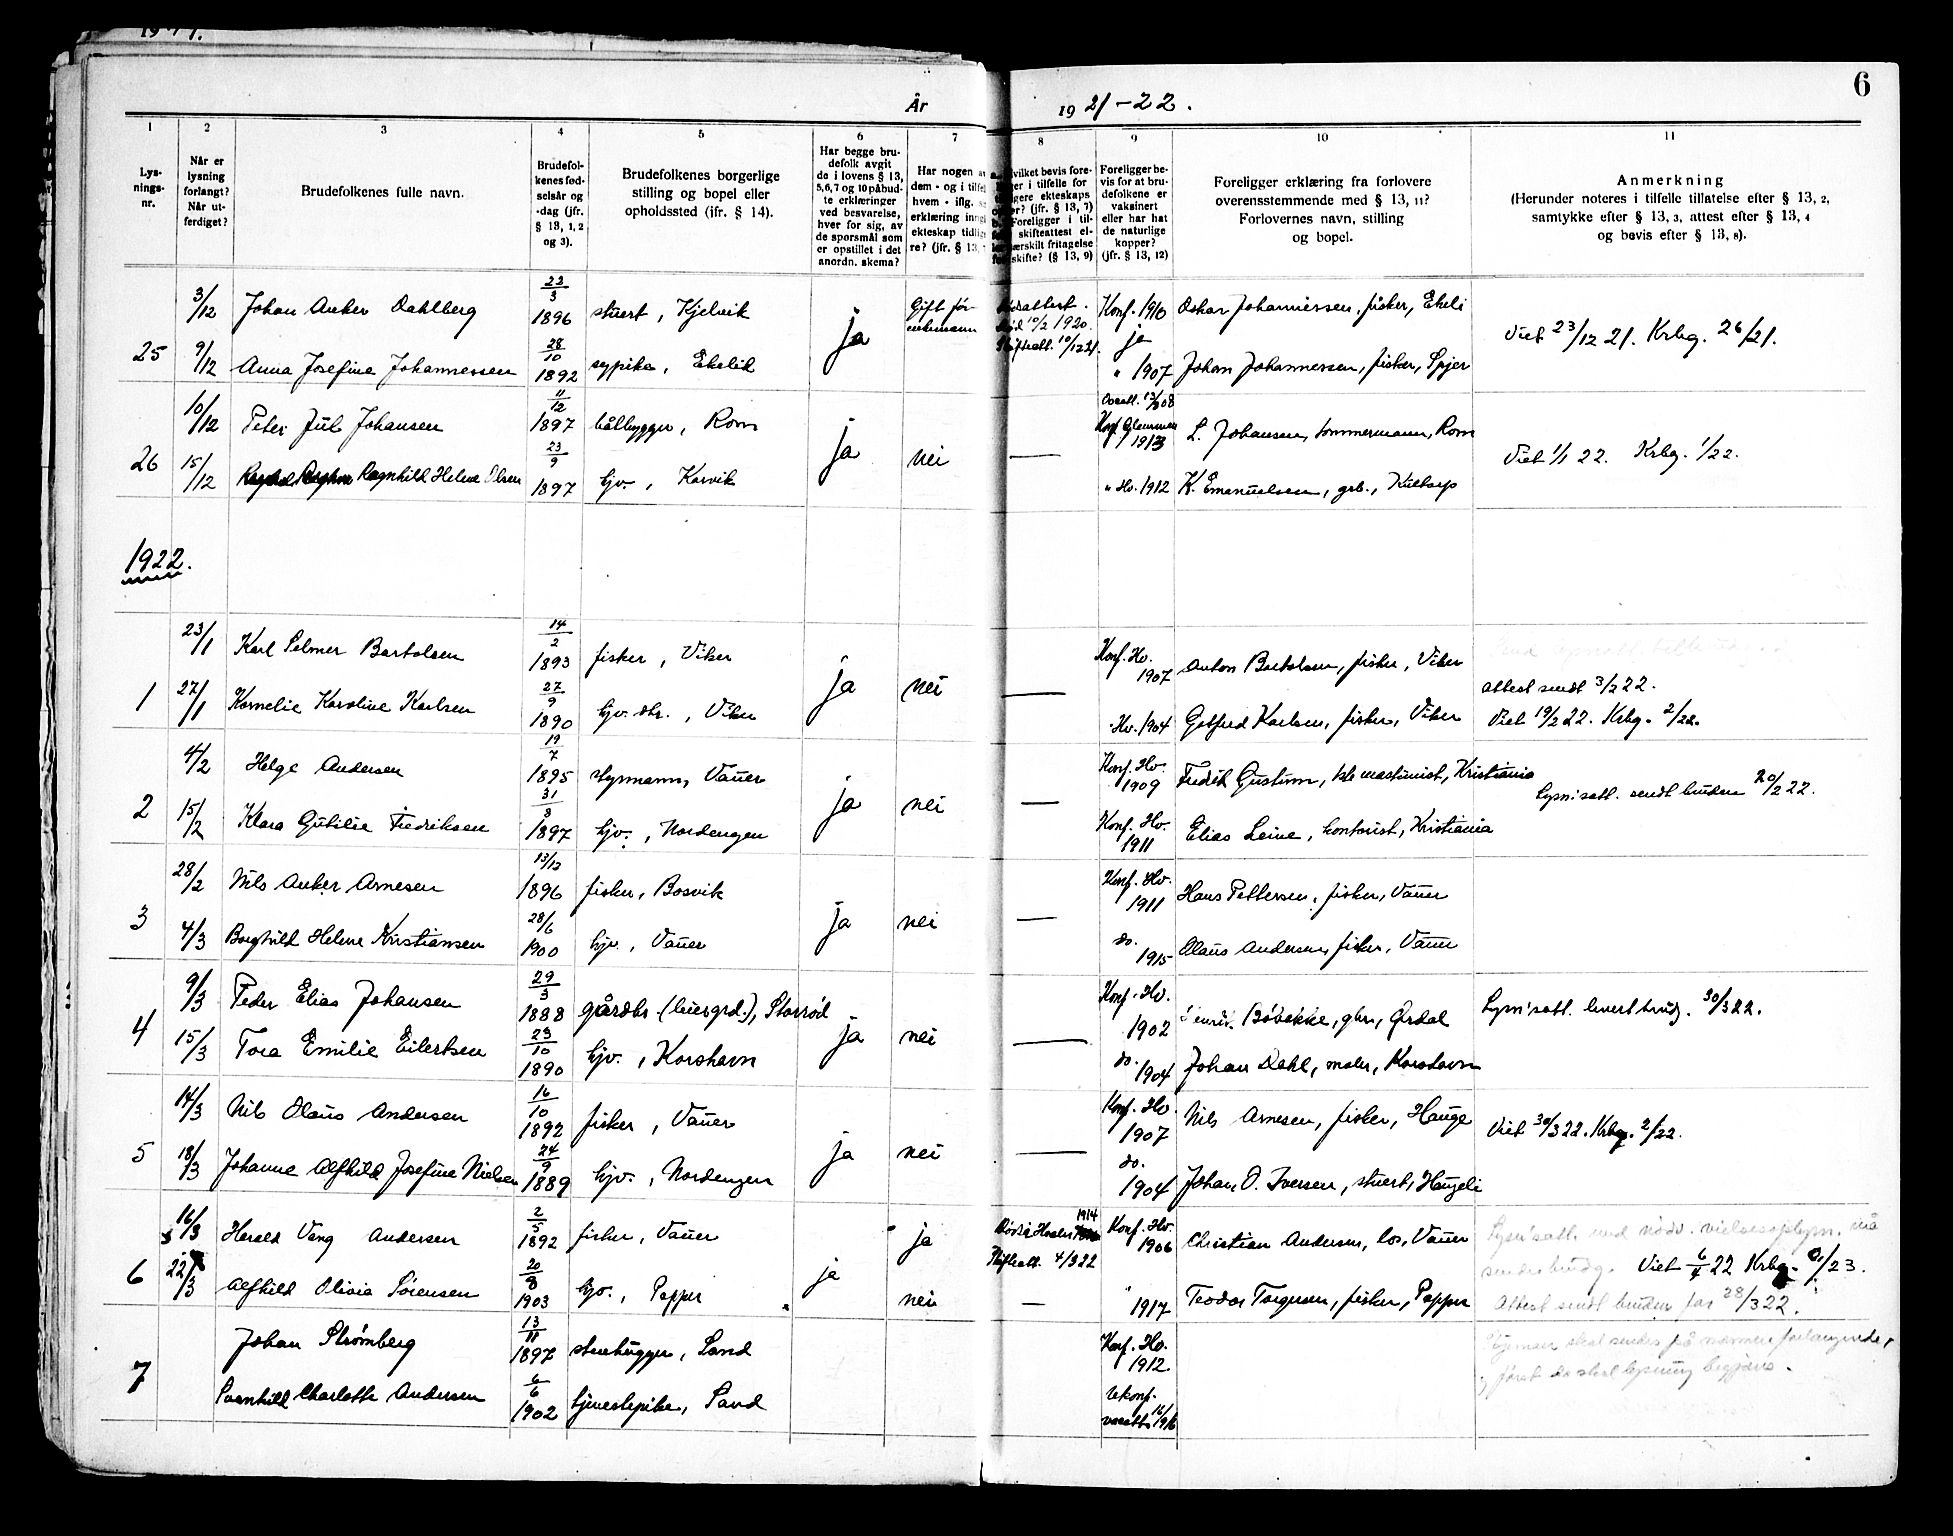 6
År 1921-22.
1 2 3 4 5 6 7 8 9 10 11
Lys-
nings-
nr.
Når er
lysning
forlangt?
Når ut-
ferdiget?
Brudefolkenes fulle navn.
Brudefol-
kenes fød-
selsår og
-dag (jfr.
§ 13, 1, 2
og 3).
Brudefolkenes borgerlige
stilling og bopel eller
opholdssted (ifr. § 14).
Har begge bru-
defolk avgit
de i lovens § 13,
5,6,7 og 10 påbud-
te erklæringer
ved besvarelse,
hver for sig, av
de spørsmål som
er opstillet i det
anordn. skema?
Har nogen a
dem - og i tilfel
hvem - iflg.
erklæring inng
ekteskap tidlig
re? (jfr. § 13,
vilket bevis fore-
ger i tilfelle for
ligere ekteskaps
r? (jfr. § 13, 7)
Foreligger i til-
skifteattest el-
særskilt fritagelse
skifte? (§ 13, 9)
Foreligger be-
vis for at bru-
defolkene er
vaksinert
eller har hat
de naturlige
kopper?
(jfr. § 13, 12)
Foreligger erklæring fra forlovere
overensstemmende med § 13, 11?
Forlovernes navn, stilling
og bopel.
Anmerkning
(Herunder noteres i tilfelle tillatelse efter § 13, 2,
samtykke efter § 13, 3, attest efter § 13, 4
og bevis efter § 13, 8).
3/12 Johan Anker Dahlberg 22/3 1896 stuert, Kjelvik ja Gift før Konf. 1910 Oskar Johannessen, fisker, Ekeli
Viet 23/12 21. Krbg. 26/21.
25 9/12 Anna Josefine Johannessen 28/10 1892 sypike, Ekelid ja " 1907 Johan Johannessen, fisker, Spjer
10/12 Peter Jul Johansen 11/12 1897 båtbygger, Rom ja nei — 1913 L. Johansen, tømmermann, Rom
Viet 1/1 22. Krbg. 1/22.
26 15/12 Ragnhild Helene Olsen 23/9 1897 hjv., Korvik " Hv. 1912 K. Emanuelsen, grb., Kiltorp
1922.
23/1 Karl Selmer Bartolsen 14/2 1893 fisker, Viker ja nei — Konf. Hv. 1907 Anton Bartolsen, fisker, Viker
attest sendt 3/2 22.
1 27/1 Kornelie Karoline Karlsen 27/9 1890 hjv. dtr., Viker Hv. 1904 Gotfred Karlsen, fisker, Viker Viet 19/2 22. Krbg. 2/22.
4/2 Helge Andersen 19/7 1895 styrmann, Vauer ja nei — Konf. Hv. 1909 Fredrik Gustum, maskinist, Kristiania
Lysn'satt. sendt bruden 20/2 22.
2 15/2 Klara Gutilie Fredriksen 31/3 1897 hjv., Nordengen Konf. Hv. 1911 Elias Leine, kontorist, Kristiania
28/2 Nils Anker Arnesen 13/12 1896 fisker, Bosvik ja nei — Konf. Hv. 1911 Hans Pettersen, fisker, Vauer
3 4/3 Borghild Helene Kristiansen 28/6 1900 hjv., Vauer do. 1915 Olaus Andersen, fisker, Vauer
9/3 Peder Elias Johansen 29/3 1888 gårdbr. (leiergrd.), Storrød ja nei — Konf. Hv. 1902 Bøbakke, gbr., Ørdal Lysn'satt. levert brudg. 30/3 22.
4 15/3 Tora Emilie Eilertsen 23/10 1890 hjv., Korshavn do. 1904 Johan Dahl, maler, Korshavn
14/3 Nils Olaus Andersen 16/10 1892 fisker, Vauer ja nei — Konf. Hv. 1907 Nils Arnesen, fisker, Hauge Viet 30/3 22. Krbg. 2/22.
5 18/3 Johanne Alfhild Josefine Nielsen 24/9 1889 hjv., Nordengen do. 1904 Johan O. Iversen, stuert, Haugeli
16/3 Harald Vang Andersen 2/5 1892 fisker, Vauer ja ja Død i Hvaler 1914 Skifteatt. 4/3 22 Konf. Hv. 1906 Christian Andersen, los, Vauer Lysn'satt. med nødv. vielsesoplysn. må
sendes brudg. Viet 6/4 22 Krbg. /23.
6 22/3 Alfhild Olivia Sørensen 20/8 1903 hjv., Papper nei — " 1917 Teodor Torgersen, fisker, Papper Attest sendt bruden før 28/3 22.
Johan Strømberg 13/11 1897 stenhugger, Sand Konf. Hv. 1912. skal sendes på nærmere forlangende,
først da skal lysning begjæres.
7 Svanhild Charlotte Andersen 6/6 1902 tjenestepike, Sand Ukonf. vacatt. 16/ 1916